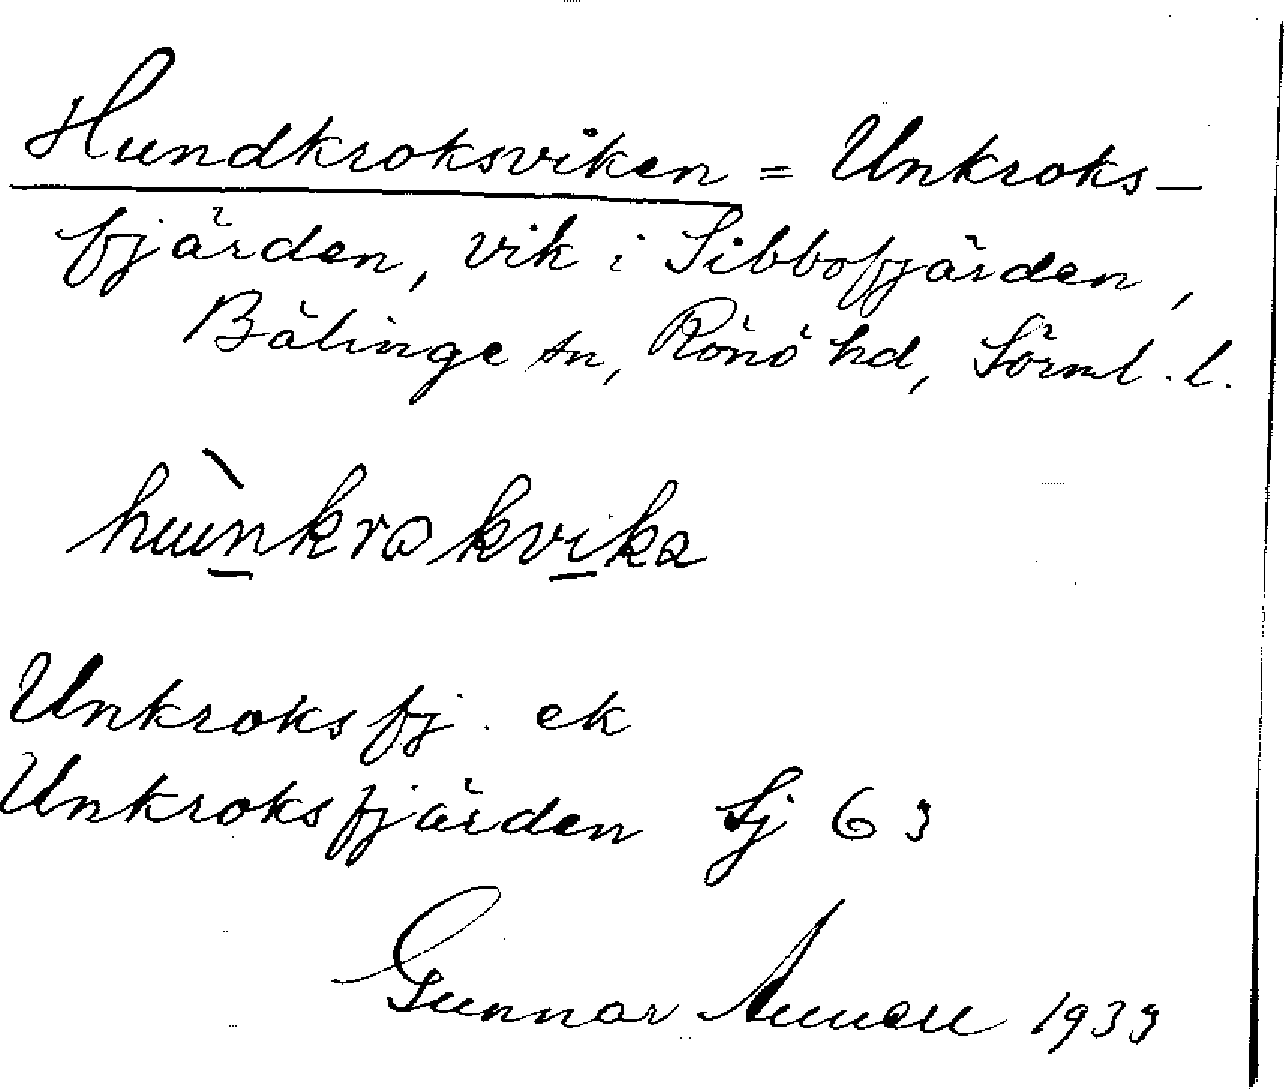 Hundkroksviken = Unkroks-
fjärden, vik i Sibbofjärden,
Bälinge sn, Rönö hd, Sörml. l.
Unkroksfj. ek
Unkroksfjärden Sj 63
Gunnar 1939